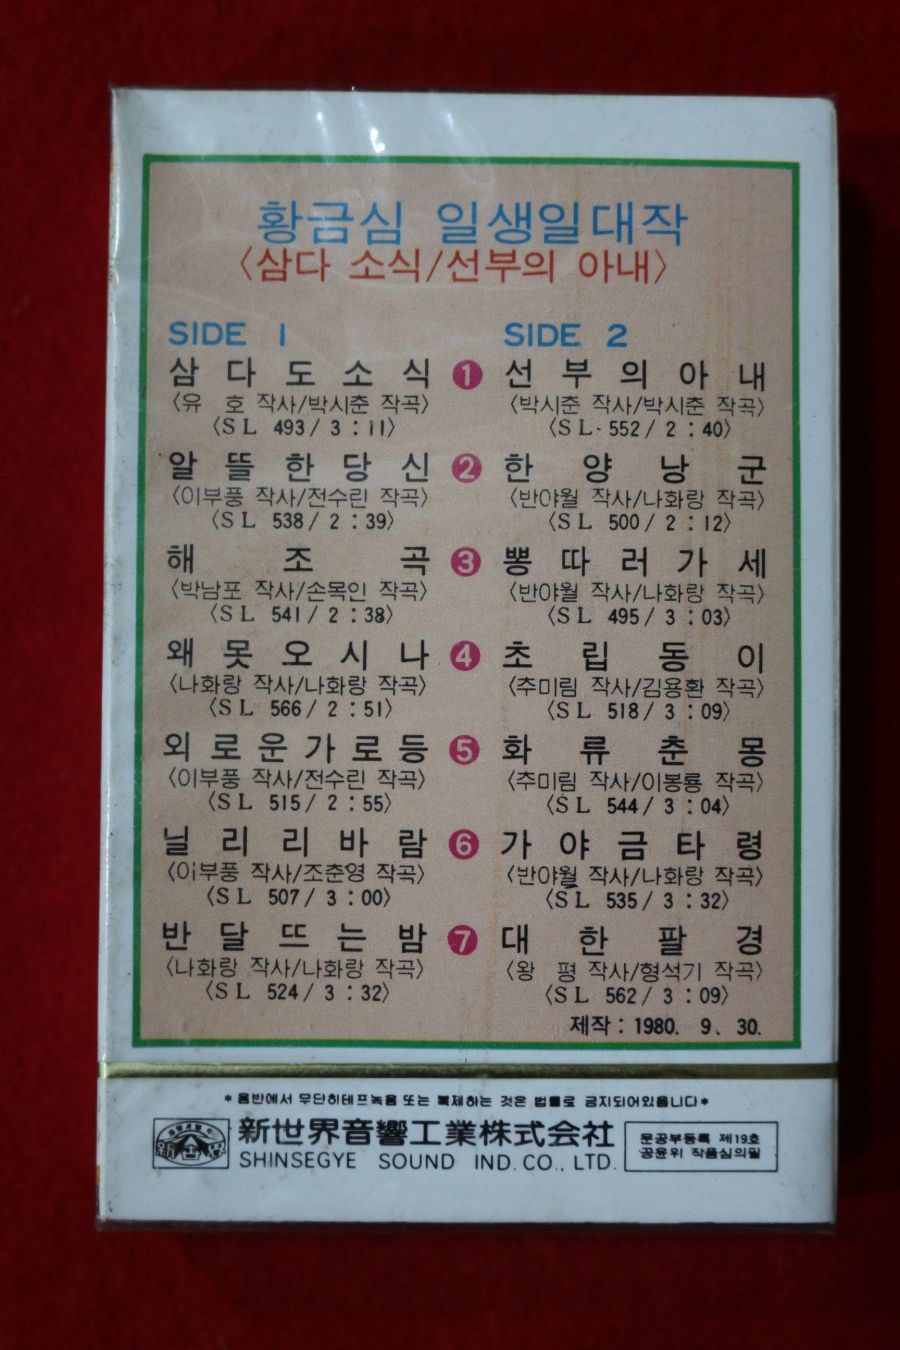 황금심 일생일대작
〈삼다 소식/선부의 아내〉
SIDE 1
삼다도소식
〈유 호 작사/박시춘 작곡〉
〈SL 493/ 3 : 11〉
알뜰한당신
〈이부풍 작사/전수린 작곡〉
〈SL 538/ 2 : 39〉
해조곡
〈박남포 작사/손목인 작곡〉
〈SL 541/ 2 : 38〉
왜못오시나
〈나화랑 작사/나화랑 작곡〉
〈SL 566/ 2 : 51〉
외로운가로등
〈이부풍 작사/전수린 작곡〉
〈SL 515/ 2 : 55〉
닐리리바람
〈이부풍 작사/조춘영 작곡〉
〈SL 507/ 3 : 00〉
반달뜨는밤
〈나화랑 작사/나화랑 작곡〉
〈SL 524/ 3 : 32〉
1
2
3
4
5
6
7
SIDE 2
선부의아내
〈박시춘 작사/박시춘 작곡〉
〈SL 552/ 2 : 40〉
한양낭군
〈반야월 작사/나화랑 작곡〉
〈SL 500/ 2 : 12〉
뽕따러가세
〈반야월 작사/나화랑 작곡〉
〈SL 495/ 3 : 03〉
초립동이
〈추미림 작사/김용환 작곡〉
〈SL 518/ 3 : 09〉
화류춘몽
〈추미림 작사/이봉룡 작곡〉
〈SL 544/ 3 : 04〉
가야금타령
〈반야월 작사/나화랑 작곡〉
〈SL 535/ 3 : 32〉
대한팔경
〈왕 평 작사/형석기 작곡〉
〈SL 562/ 3 : 09〉
제작 : 1980. 9. 30.
* 음반에서 무단히테프녹음 또는 복제하는 것은 법률로 금지되어있읍니다 *
新世界音響工業株式会社
SHINSEGYE SOUND IND. CO., LTD.
문공부등록 제19호
공윤위 작품심의필